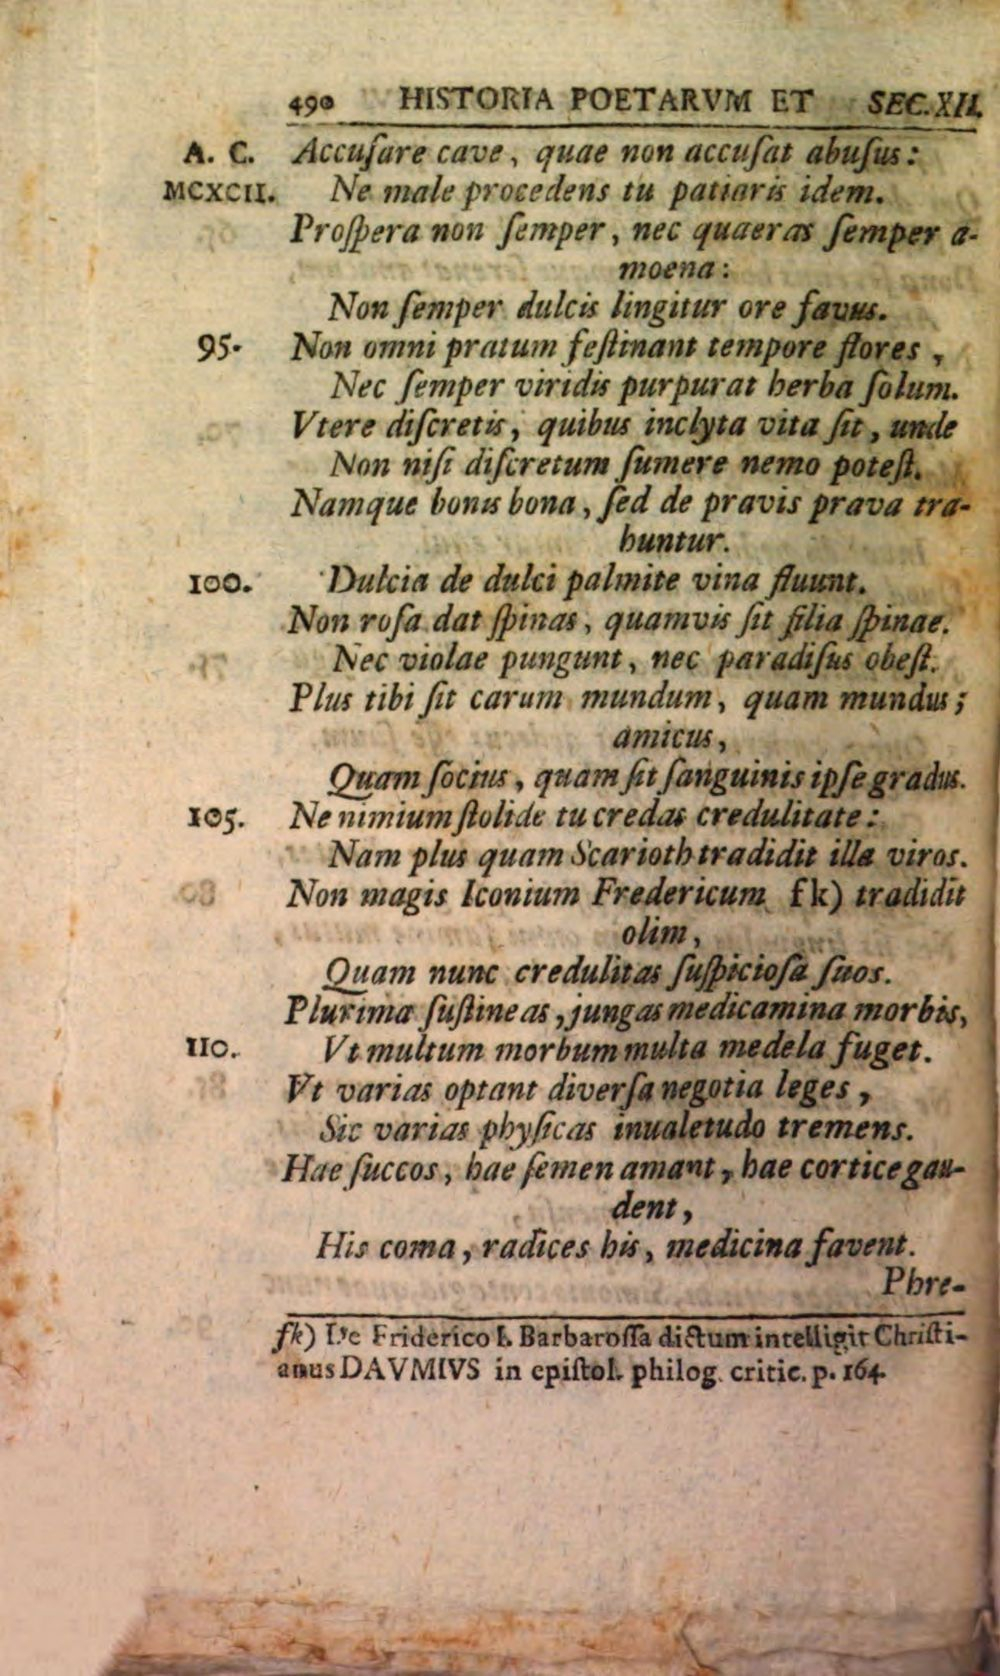 490 HISTORIA POETARVM ET SEC. XII.
A. C. Accuſare cave, quae non accuſat abuſus:
MCXCII. Ne male procedens tu patiaris idem.
Proſpera non ſemper, nec quaeras ſemper a-
moena:
Non ſemper dulcis lingitur ore favus.
95. Non omni pratum feſtinant tempore flores,
Nec ſemper viridis purpurat herba ſolum.
Vtere diſcretis, quibus inclyta vita ſit, unde
Non niſi diſcretum ſumere nemo poteſt.
Namque bonis bona, ſed de pravis prava tra-
huntur.
100. Dulcia de dulci palmite vina fluunt.
Non roſa dat ſpinas, quamvis ſit filia ſpinae.
Nec violae pungunt, nec paradiſus obeſt.
Plus tibi ſit carum mundum, quam mundus;
amicus,
Quam ſocius, quam ſit ſanguinis ipſe gradus.
105. Ne nimium ſtolide tu credas credulitate:
Nam plus quam Scarioth tradidit illa viros.
Non magis Iconium Fredericum fk) tradidit
olim,
Quam nunc credulitas ſuſpicioſa ſuos.
Plurima ſuſtineas, jungas medicamina morbis,
110. Vt multum morbum multa medela fuget.
Vt varias optant diverſa negotia leges,
Sic varias phyſicas inualetudo tremens.
Hae ſuccos, hae ſemen amant, hae cortice gau-
dent,
His coma, radices his, medicina favent.
Phre-
fk) De Friderico I. Barbaroſſa dictum intelligit Chriſti-
anus DAVMIVS in epiſtol. philog. critic. p. 164.